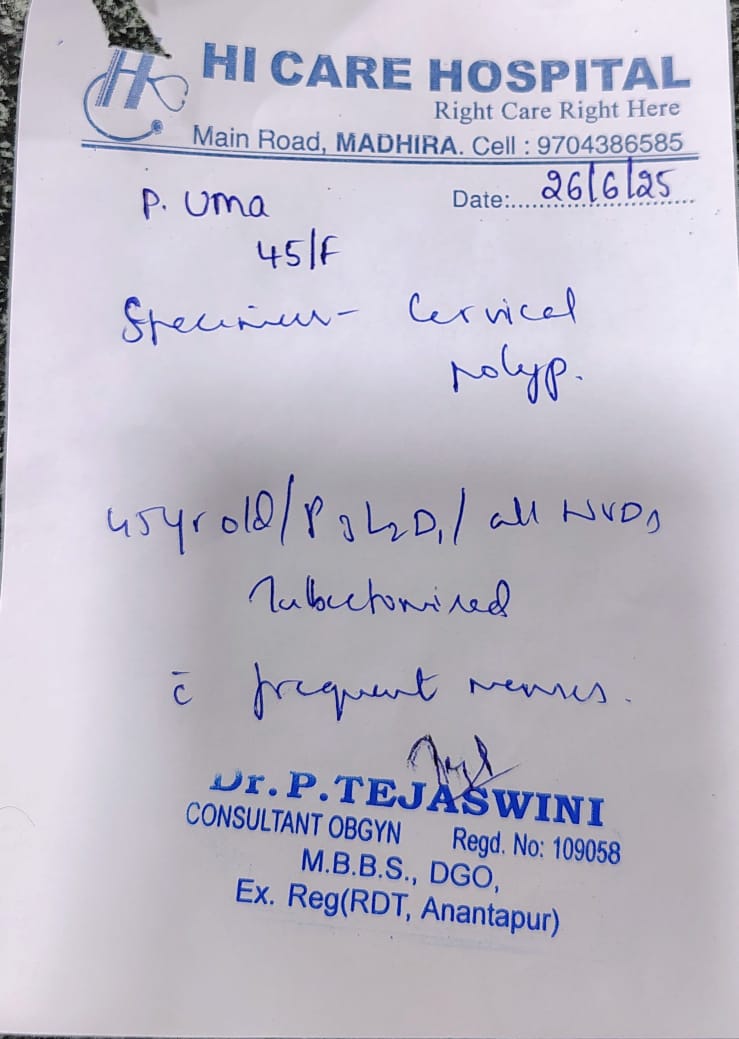 HI CARE HOSPITAL
Right Care Right Here
Main Road, MADHIRA. Cell : 9704386585
P. Uma
Date:..... 26/6/25
45/F
Specimen - Cervical
polyp.
45yr old/P3L2D1/ all NVDs
Tubectomised
c̄ frequent menses.
Dr. P. TEJASWINI
CONSULTANT OBGYN Regd. No: 109058
M.B.B.S., DGO,
Ex. Reg(RDT, Anantapur)